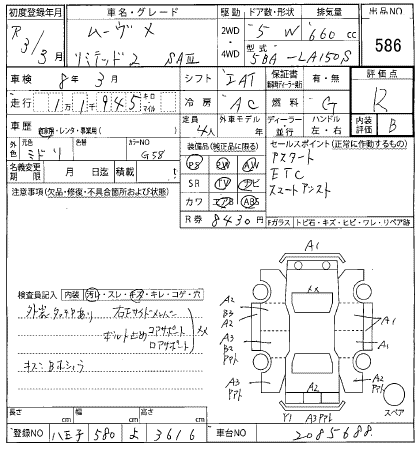 初度登録年月 車名・グレード 駆動 ドア数・形状 排気量 出品NO
R3/3月 ムーヴ 2WD 5 W 660 cc 586
リミテッド2 SAⅢ 4WD 型式 5BA-LA150S
車検 8年 3月 シフト IAT 保証書 有・無 評価点
走行 11945 キロ マイル 冷房 AC 燃料 G R
車歴 自家用・レンタ・事業用( ) 定員 4人 外車モデル年 ディーラー 並行 ハンドル 左・右 内装評価 B
外色 元色 ミドリ 色替 カラーNO G58
装備品(純正品に限る) セールスポイント(正常に作動するもの)
名義変更期限 月 日 積載 t
PS PW AW アスラート
注意事項(欠品・修復・不具合箇所および状態) SR TV ナビ ETC
カワ エアB ABS スマートアシスト
R券 8430円 Fガラス トビ石・キズ・ヒビ・ワレ・リペア跡
A1
検査員記入 内装 汚レ・スレ・キズ・キレ・コゲ・穴
外装 タッチアリ 右Fサイドメンバー
ボルト止め コアサポート
ロアサポート
XX
キズ、Bホショウ
A2
B3
A2
A3
B2
アト
A3
アト
A2
アト
XX
A1
A1
A2
Y1 A3アト
スペア
長さ cm 幅 cm 高さ cm
登録NO 八王子 580 よ 3616 車台NO 2085688